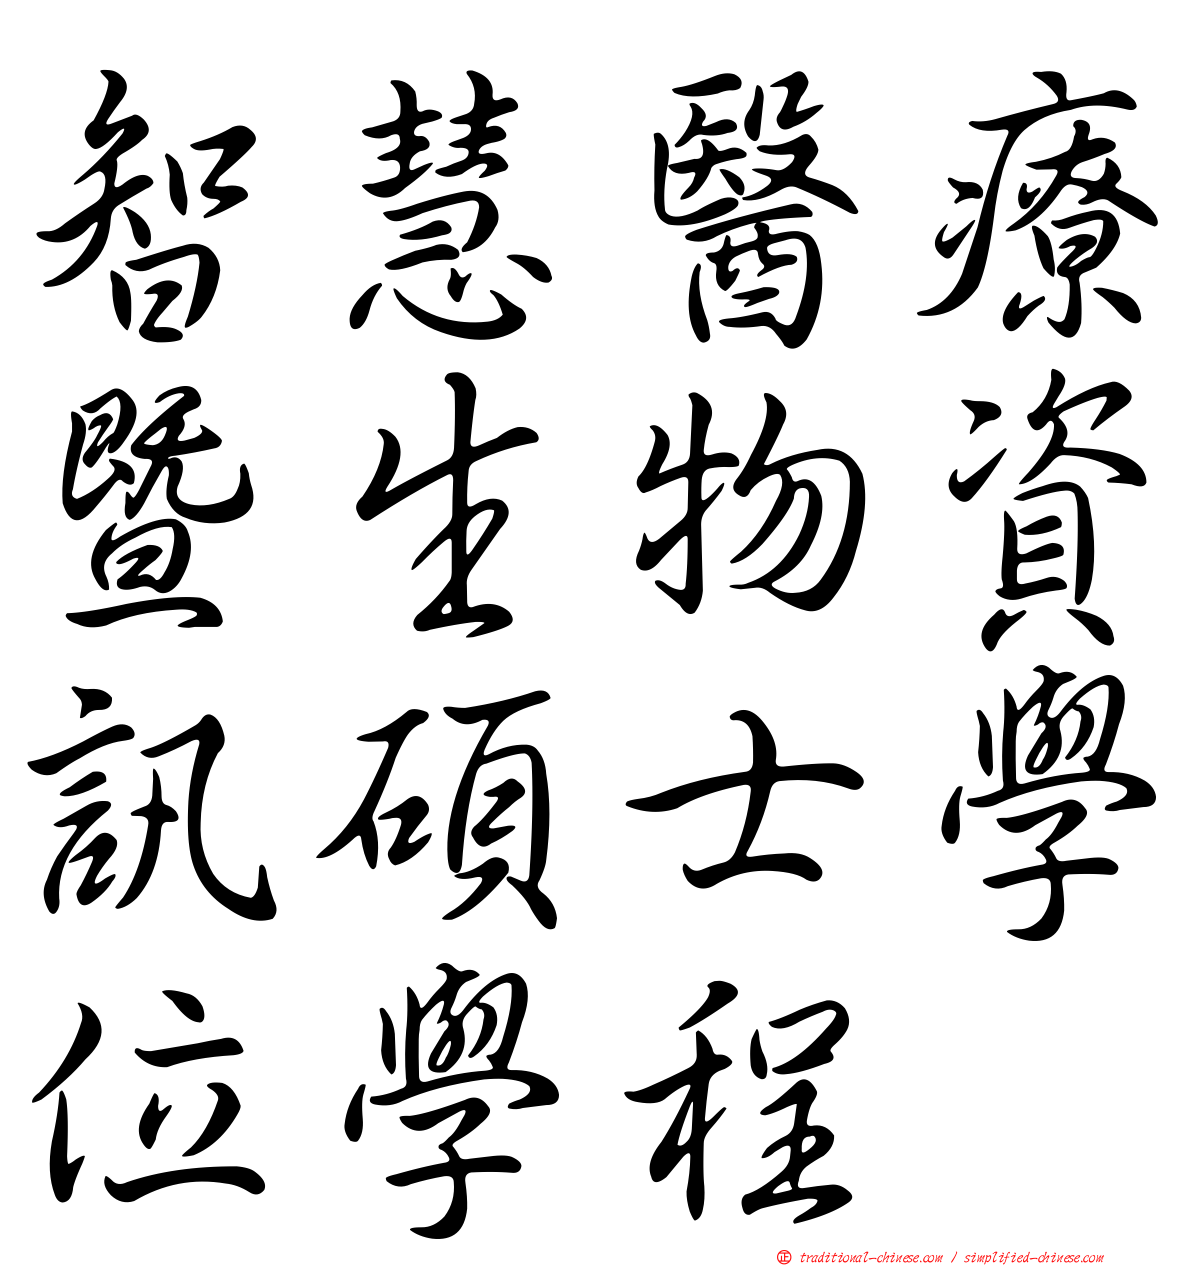 智慧醫療
暨生物資
訊碩士學
位學程
㊣ traditional-chinese.com / simplified-chinese.com